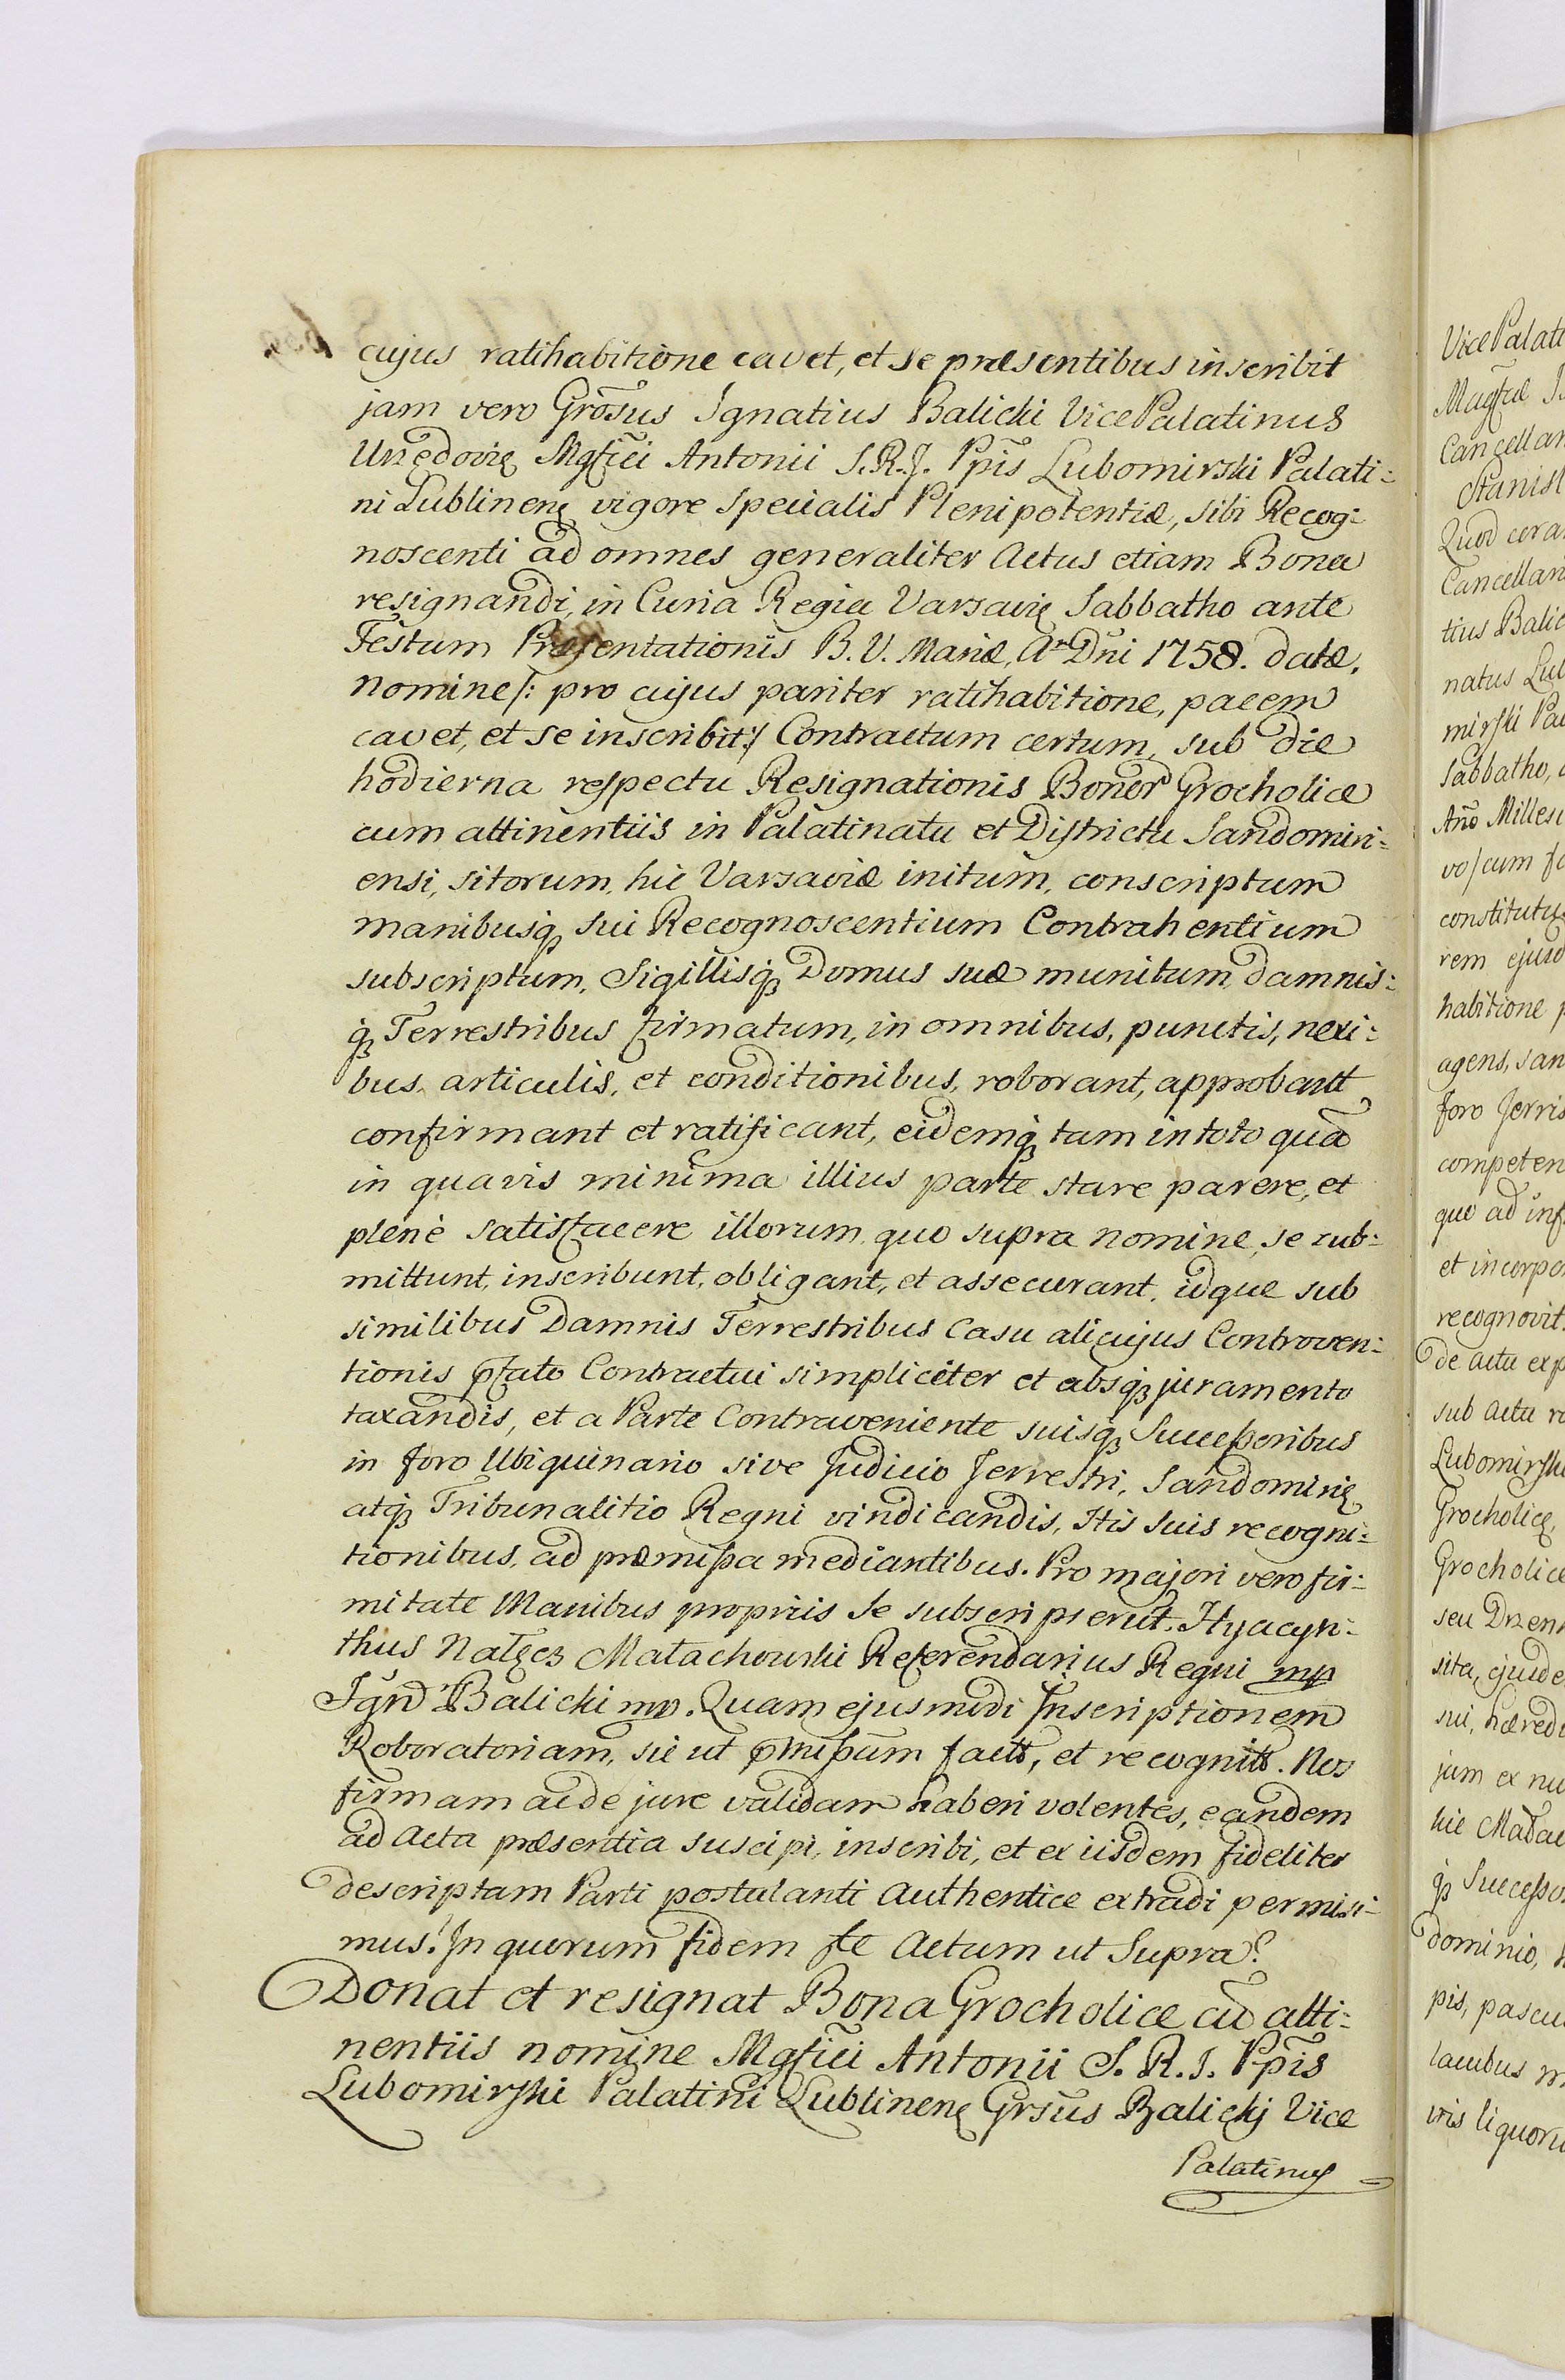 cujus ratihabitione cavet, et se præsentibus inscribit
jam vero Grõsus Ignatius Balicki VicePalatinus
Urzędovię Mgfici Antonii S.R.J. Ppis Lubomirski Palati:
ni Lublinenę vigore specialis Plenipotentiæ, sibi Recog:
noscenti ad omnes generaliter Actus etiam Bona
resignandi, in Curia Regia Varsavię Sabbatho ante
Festum Præsentationis B. V. Mariæ, Aº Dñi 1758. datæ,
nomine /: pro cujus pariter ratihabitione, pacem
cavet, et se inscribit :/ Contractum certum, sub die
hodierna respectu Resignationis Bonor Grocholice
cum attinentiis in Palatinatu et Districtu Sandomiri:
ensi, sitorum, hic Varsaviæ initum, conscriptum
manibusq sui Recognoscentium Contrahentium
subscriptum, Sigillisq Domus suæ munitum, damnis:
q Terrestribus firmatum, in omnibus, punctis, nexi:
bus, articulis, et conditionibus, roborant, approbant
confirmant et ratificant, eidemq tam in toto quã
in quavis minima illius parte stare parere, et
plenè satisfacere illorum quo supra nomine, se sub:
mittunt, inscribunt, obligant, et assecurant, idque sub
similibus Damnis Terrestribus Casu alicujus Controven:
tionis pfato Contractui simpliciter et absq juramento
taxandis, et a Parte Contraveniente suisq Successoribus
in foro Ubiquinario sive Judicio Terrestri, Sandomirię
atq Tribunalitio Regni vindicandis, Htis suis recogni:
tionibus, ad præmissa mediantibus. Pro majori vero fir:
mitate Manibus propriis se subscripserũt. Hyacyn:
thus Nałęcz Małachowski Referendarius Regni mp
Ignã Balicki mp. Quam ejusmodi Inscriptionem
Roboratoriam, sic ut pmissum factã, et recognitã. Nos
firmam ac de jure validam haberi volentes, eandem
ad Acta præsentia suscipi, inscribi, et ex iisdem fideliter
descriptam Parti postulanti authentice extradi permisi:
mus. In quorum fidem &c Actum ut Supra.
Donat et resignat Bona Grocholice cũ atti:
nentiis nomine Mgfici Antonii S. R. J. Ppis
Lubomirski Palatini Lublinenę Grsũs Balickj Vice
Palatinus
VicePalati
Cancellar
Stanisl
Cancellar
tius Balic
natus Lub
mirski Pa
Sabbatho,
Año Milles
constitutu
rem ejusd
habitione p
agens, san
competen
et incorpo
recognovit.
de actu exp
sub actu r
Lubomirski
Grocholicę
Grocholice
sita, ejusde
sui, hæredi
jam ex nu
q Successo
dominio, h
pis, pascui